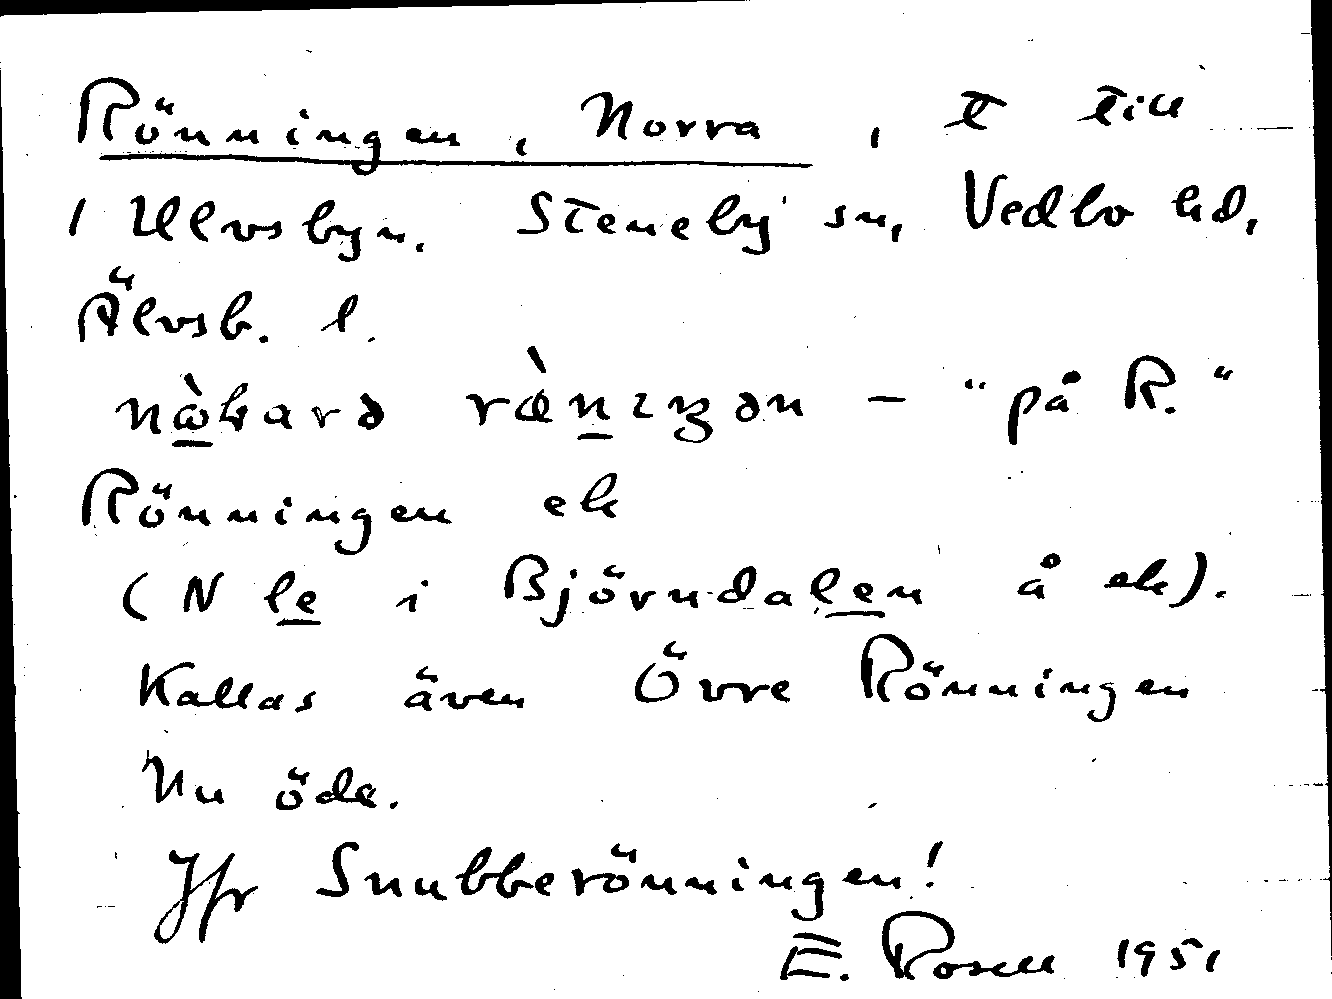 Rönningen, Norra, t till
1 Ulvsbyn. Steneby sn, Vedbo hd,
Älvsb. l.
nɷ̀karə ræ̀nıŋən – "på R."
Rönningen ek
(N le i Björndalen å ek).
Kallas även Övre Rönningen
Nu öde.
Jfr Snubberönningen!
E. Rosell 1951